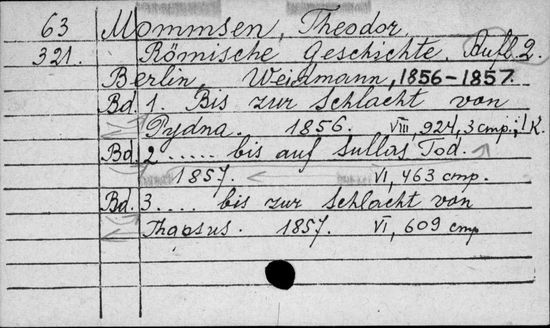 63 Mommsen, Theodor
321. Römische Geschichte. Aufl. 2.
Berlin, Weidmann, 1856-1857.
Bd. 1. Bis zur Schlacht von
Pydna. 1856. VIII, 924, 3 стр.; 1 К.
Bd. 2 ..... bis auf Sullas Tod.
1857. VI, 463 стр.
Bd. 3 .... bis zur Schlacht von
Thapsus. 1857. VI, 609 стр